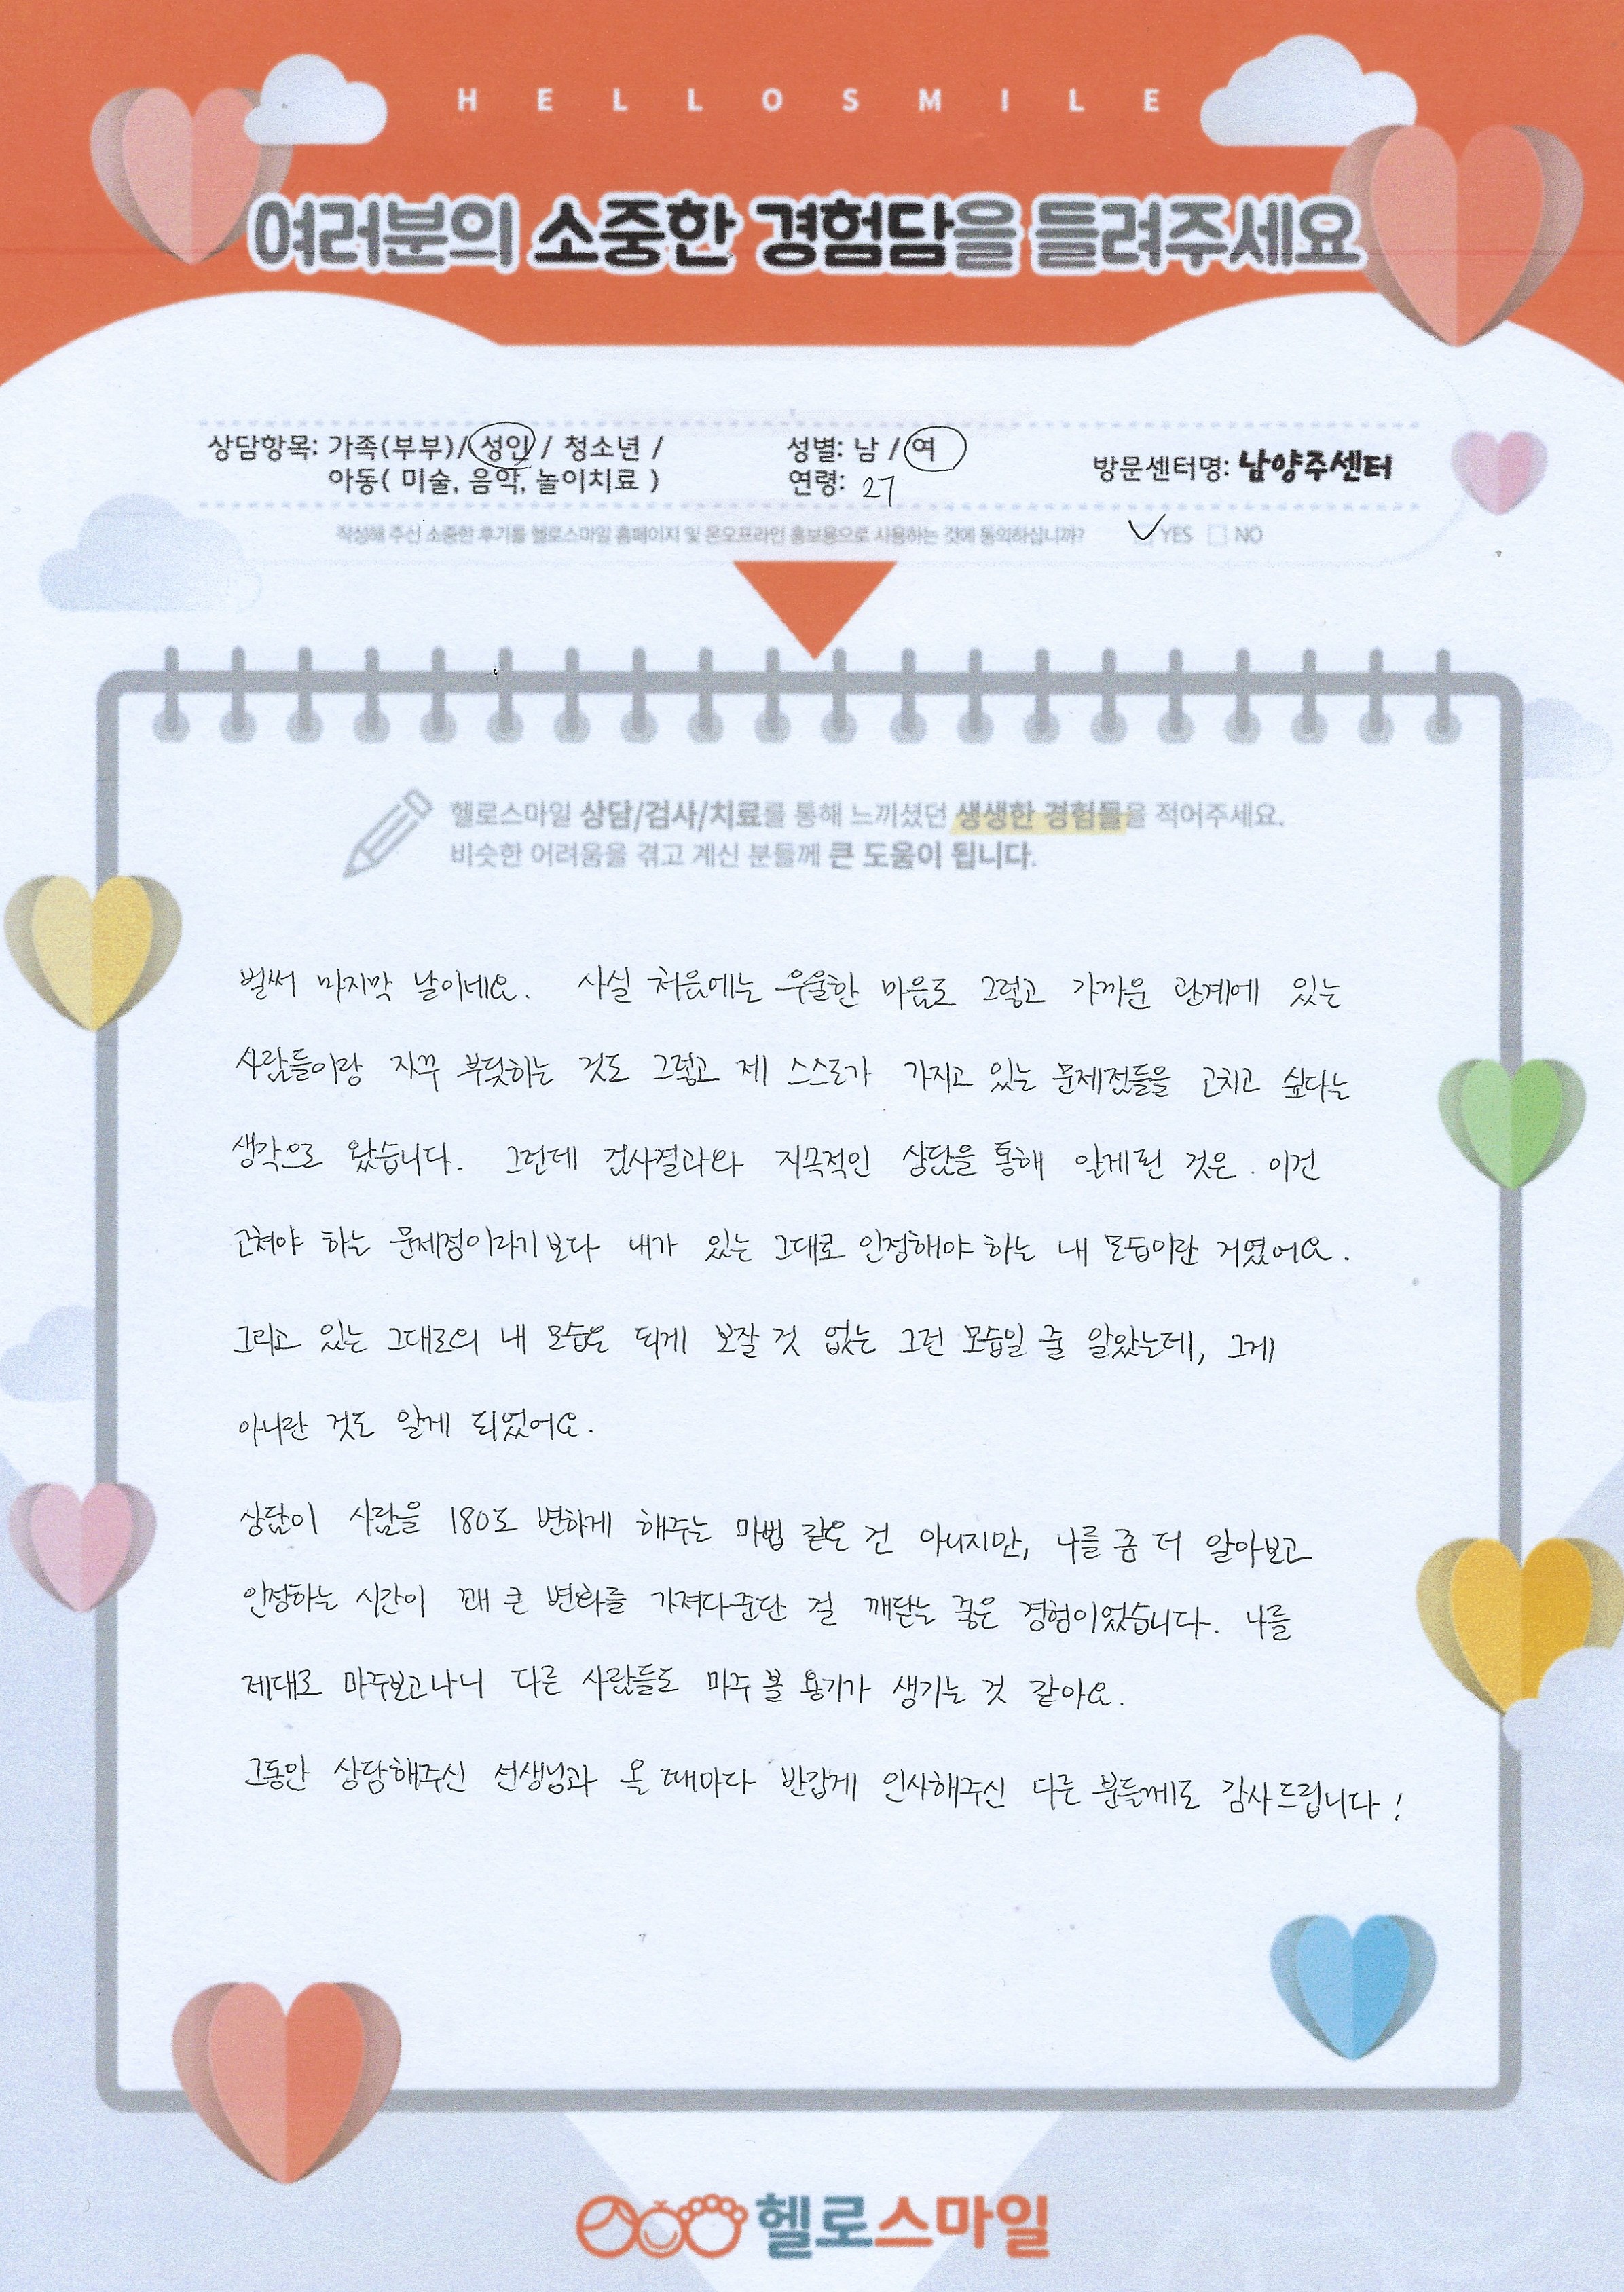 HELLOSMILE
여러분의 소중한 경험담을 들려주세요
상담항목: 가족(부부)/ 성인 / 청소년 /
아동( 미술, 음악, 놀이치료 )
성별: 남 / 여
연령: 27
방문센터명: 남양주센터
작성해 주신 소중한 후기를 헬로스마일 홈페이지 및 온오프라인 홍보용으로 사용하는 것에 동의하십니까? YES NO
헬로스마일 상담/검사/치료를 통해 느끼셨던 생생한 경험들을 적어주세요.
비슷한 어려움을 겪고 계신 분들께 큰 도움이 됩니다.
벌써 마지막 날이네요. 사실 처음에는 우울한 마음도 그렇고 가까운 관계에 있는
사람들이랑 자꾸 부딪히는 것도 그렇고 제 스스로가 가지고 있는 문제점들을 고치고 싶다는
생각으로 왔습니다. 그런데 검사결과와 지속적인 상담을 통해 알게된 것은. 이건
고쳐야 하는 문제점이라기보다 내가 있는 그대로 인정해야 하는 내 모습이란 거였어요.
그리고 있는 그대로의 내 모습은 되게 보잘 것 없는 그런 모습일 줄 알았는데, 그게
아니란 것도 알게 되었어요.
상담이 사람을 180도 변하게 해주는 마법 같은 건 아니지만, 나를 좀 더 알아보고
인정하는 시간이 꽤 큰 변화를 가져다준단 걸 깨닫는 좋은 경험이었습니다. 나를
제대로 마주보고나니 다른 사람들도 마주 볼 용기가 생기는 것 같아요.
그동안 상담해주신 선생님과 올 때마다 반갑게 인사해주신 다른 분들께도 감사드립니다!
헬로스마일